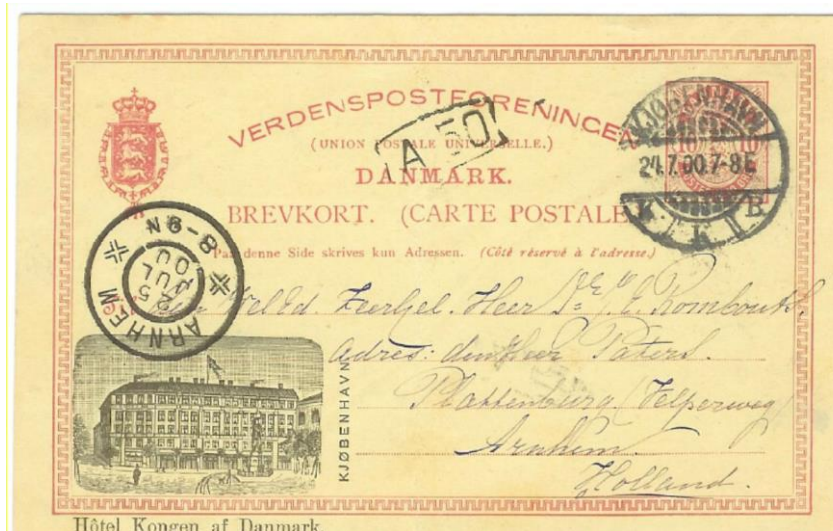 VERDENSPOSTFORENINGEN
(UNION POSTALE UNIVERSELLE.)
A 50
DANMARK.
BREVKORT. (CARTE POSTALE
Paa denne Side skrives kun Adressen. (Côté réservé à l'adresse.)
KJØBENHAVN
10 10
24.7.00.7-8E
K K B
ARNHEM
25
JUL
00
8-9N
Wel Ed. Zeergel. Heer Dr Rombouts,
Adres: den Heer Paters.
Plattenburg (Velperweg)
Arnhem.
Holland.
KJØBENHAVN
Hôtel Kongen af Danmark